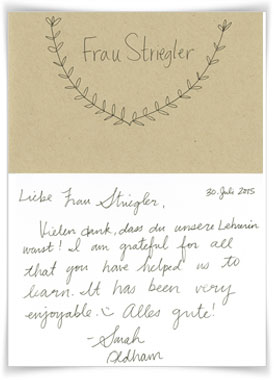 Frau Striegler
30. Juli 2015
Liebe Frau Striegler,
Vielen dank, dass du unsere Lehrerin
warst! I am grateful for all
that you have helped us to
learn. It has been very
enjoyable. :) Alles gute!
- Sarah
Oldham